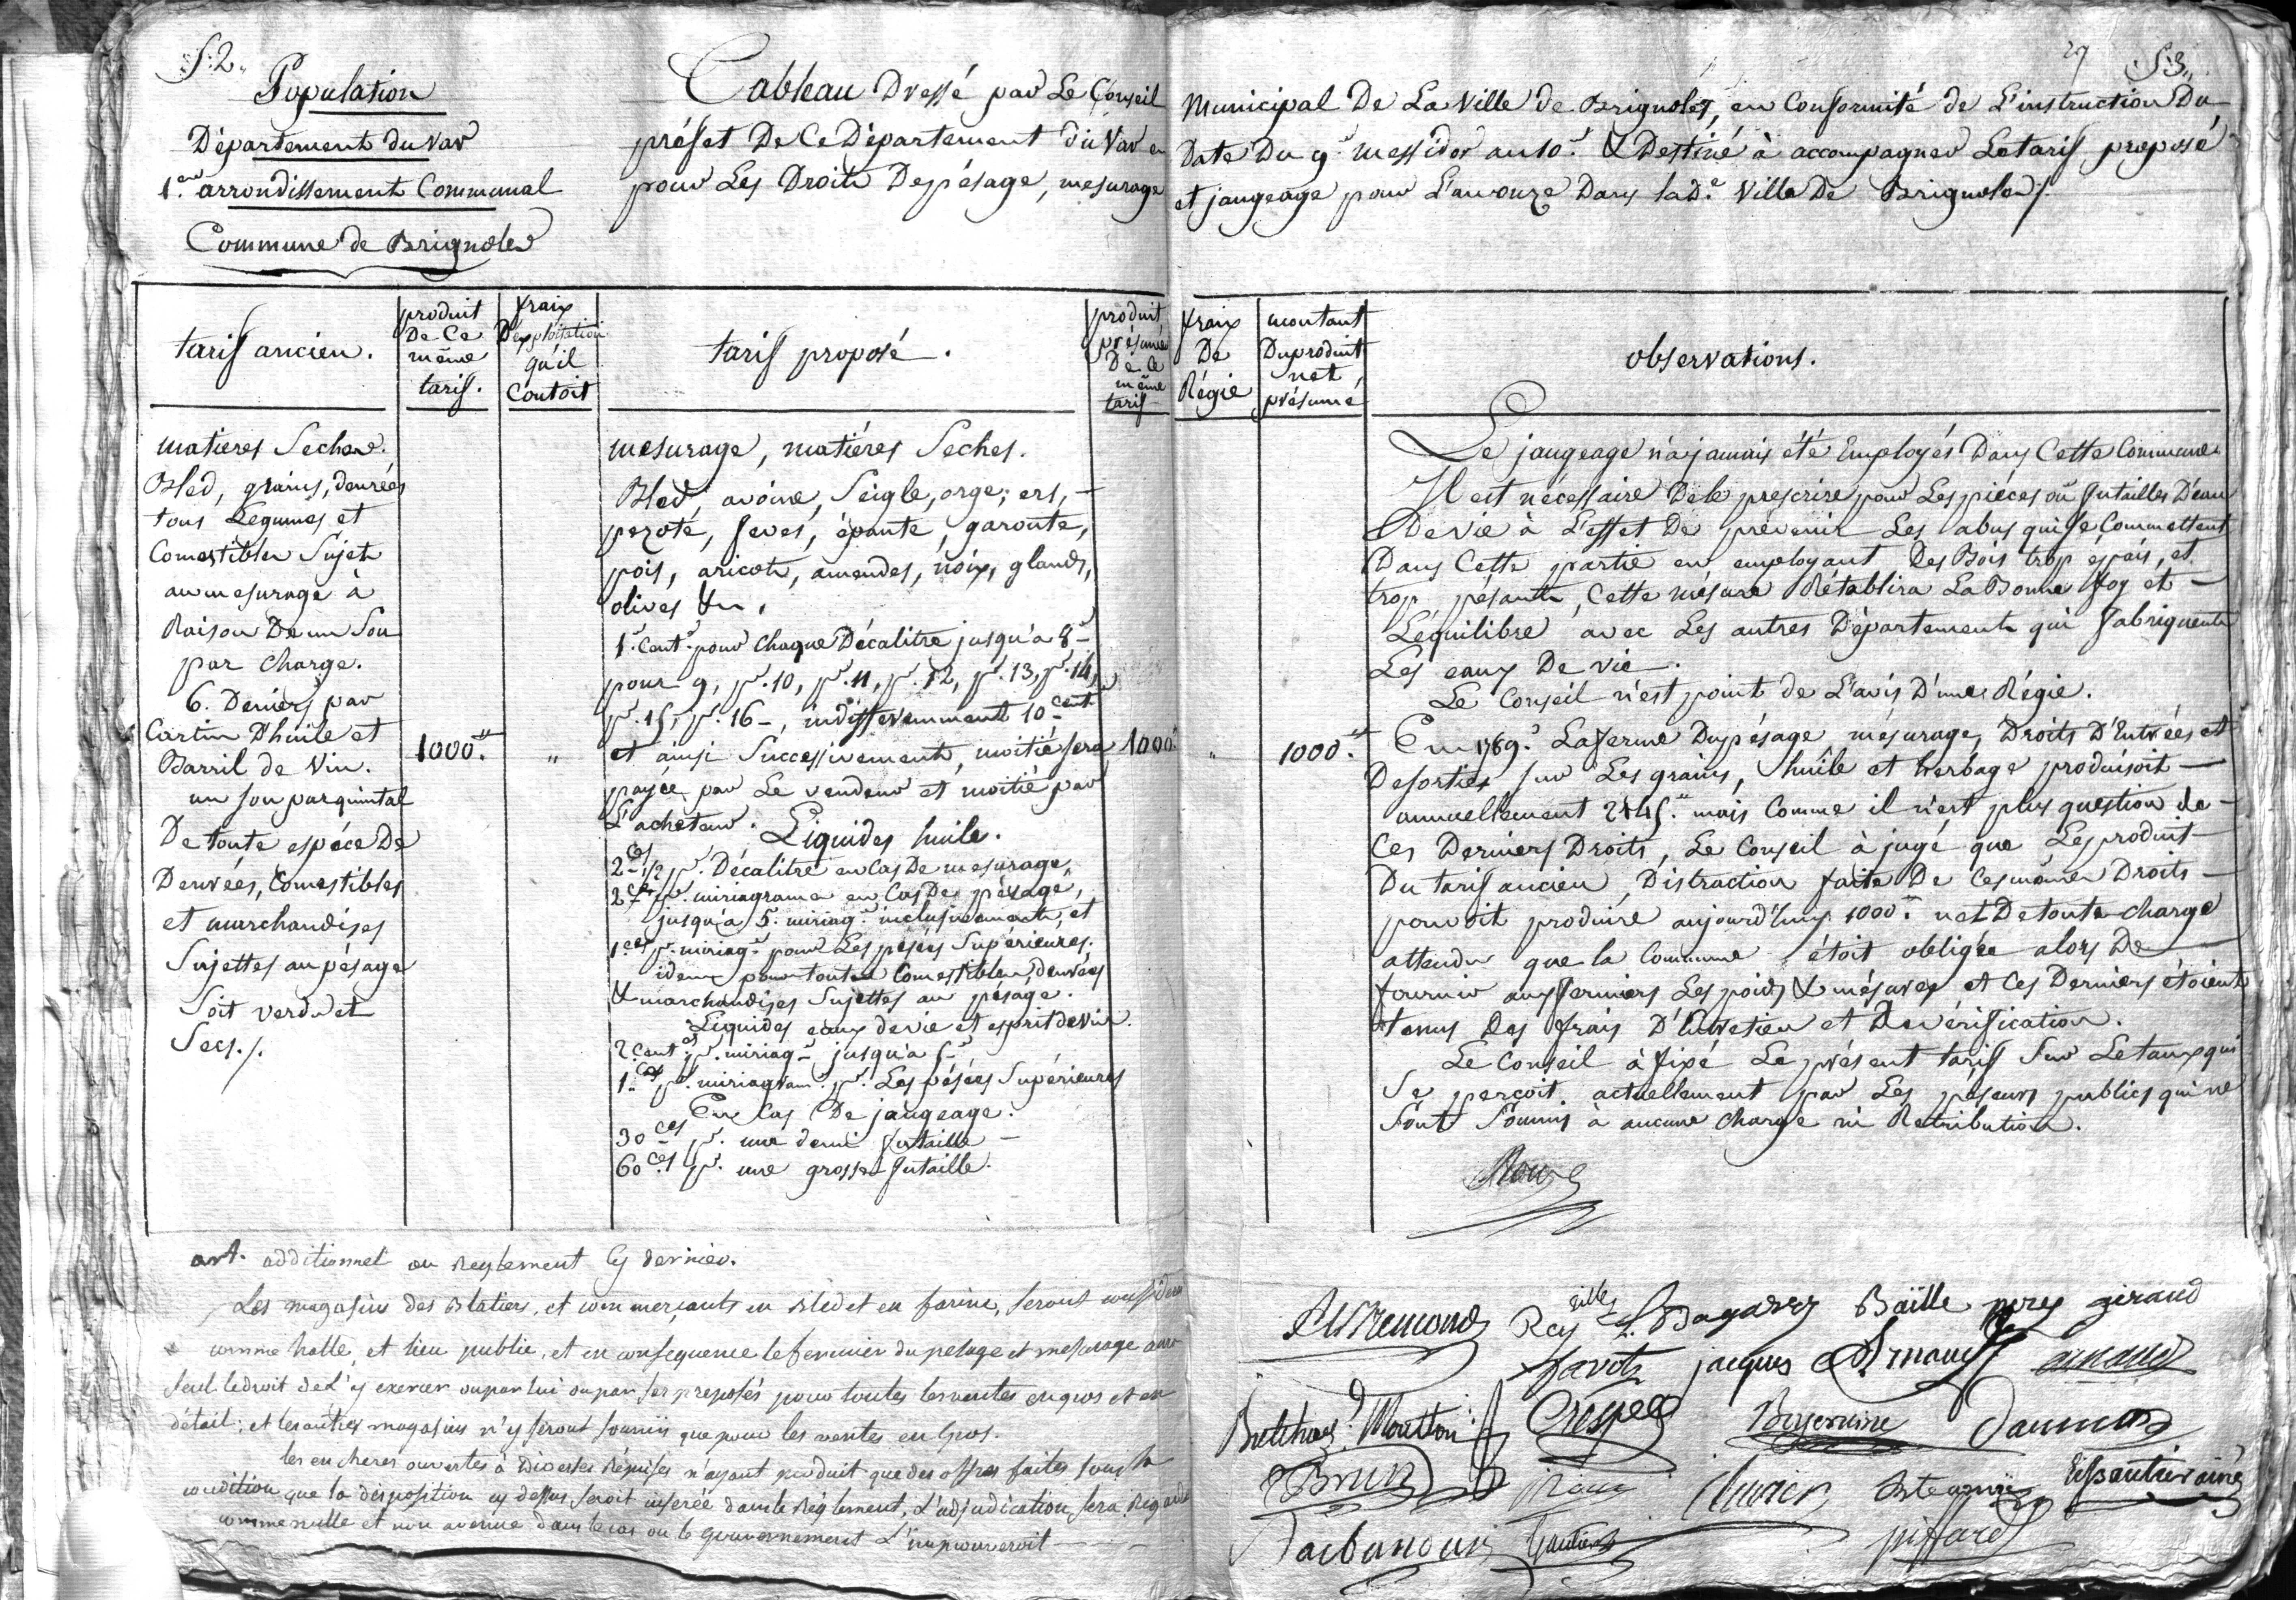 52.
Population
Département du Var
1.er arrondissement Communal
Commune de Brignoles
Tableau Dressé par Le Conseil
préfet De Ce Département du Var en
pour Les Droits De pésage, mesurage
29 53.
Municipal De La Ville de Brignoles, en Conformité de L'instruction Du
Date Du 9.e messidor an 10.e & Destiné à accompagner Le tarif proposé
et jaugeage pour L'an onze Dans la d.e Ville De Brignoles ./.
tarif ancien.
produit
De Ce
même
tarif.
fraix
D'exploitation
qu'il
Coutoit
tarif proposé.
produit
présumé
De Ce
même
tarif
fraix
De
Régie
montant
Du produit
net
présumé
observations.
matieres Seches.
Bled, grains, denrées
tous Legumes et
Comestibles Sujets
au mesurage à
Raison De un Sou
par charge.
6. Deniers par
Cartin D'huile et
Barril de Vin.
un sou par quintal
De toute espéce De
Denrées, Comestibles
et marchandises
Sujettes au pésage
Soit verds et
Secs ./.
1000.#
"
mesurage, matiéres Seches.
Bled, avoine, Seigle, orge, ers, -
pezote, feves, épaute, garoute,
pois, aricots, amendes, noix, glands,
olives &a,
1.Cent. pour Chaque Décalitre jusqu'a 8.
pour 9, pr. 10, pr. 11, pr. 12, pr. 13, pr. 14,
pr. 15, pr. 16 -, indifferemment 10 cent.
et ainsi Successivement, moitié sera
payée par Le vendeur et moitié par
L'acheteur.
Liquides huile.
2 ces 1/2 pr. Décalitre en Cas De mesurage,
2 ces pr. miriagrame en Cas De pésage,
jusqu'a 5. miriag. inclusivement, et
1.ces pr. miriag. pour Les pésées Supérieures.
idem pour toutes Comestibles, denrées
& marchandises Sujettes au pésage.
Liquides eaux de vie et esprit de vin.
2 Cent.es pr. miriag. jusqu'a 5
1.ces pr. miriagram. pr. Les pésées Supérieures
En Cas De jaugeage.
30 ces pr. une demi futaille -
60 ces pr. une grosse futaille.
1000.#
"
1000.#
Le jaugeage n'a jamais été Employés Dans Cette Commune
Il est nécessaire De le prescrire pour Les piéces ou futailles D'eau
De vie à L'effet De prévenir Les abus qui se Commettent
Dans Cette partie en employant Des Bois trop épais, et
trop pésants, Cette mésure Rétablira La Bonne foy et -
L'équilibre avec Les autres Départements qui fabriquent
Les eaux De vie.
Le Conseil n'est point de L'avis D'une Régie.
En 1789. La ferme Du pésage mésurage, Droits D'Entrées et
De sorties sur Les grains, huile et herbage produisoit -
annuellement 2445.# mais Comme il n'est plus question de -
Ces Derniers Droits, Le Conseil à jugé que Les produit
Du tarif ancien, Distraction faite De Ces mêmes Droits -
pouvoit produire aujourd'huy 1000.# net De toute charge
attendu que la Commune étoit obligée alors De
fournir aux fermiers Les poids & mésures et Ces Derniers étoient
tenus Des frais D'Entretien et De vérification.
Le Conseil à fixé Le présent tarif Sur Le taux qui
Se perçoit actuellement par Les péseurs publics qui ne
Sont Soumis à aucune charge ni Retribution.
art. additionnel au Reglement cy dernier.
Les magasins des Blatiers, et commerçants en Bled et en farine, seront considérés
comme halle, et lieu public, et en consequence le fermier du pesage et mesurage aura
seul le droit de L'y exercer ou par lui ou par ses preposés pour toutes les ventes en gros et en
détail; et les autres magasins n'y seront soumis que pour les ventes en Gros.
les encheres ouvertes à Diverses Reprises n'ayant produit que des offres faites sous la
condition que la disposition cy dessus seroit inserée dans le Règlement, L'adjudication sera regardée
comme nulle et non avenue dans le cas ou le Gouvernement L'improuveroit
Remond Rey Baille giraud
jacques
Mouttou Crespel
Brun
Barbaroux Gautier piffard